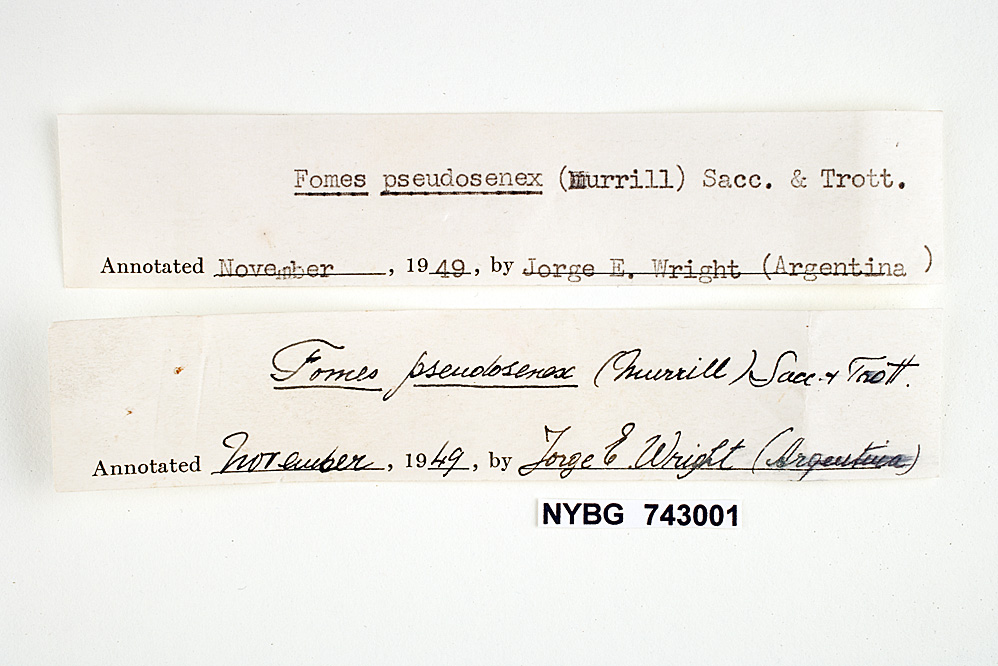 Fomes pseudosenex (Murrill) Sacc. & Trott.
Annotated November, 1949, by Jorge E. Wright (Argentina)
Fomes pseudosenex (Murrill) Sacc. & Trott.
Annotated November, 1949, by Jorge E. Wright (Argentina)
NYBG 743001